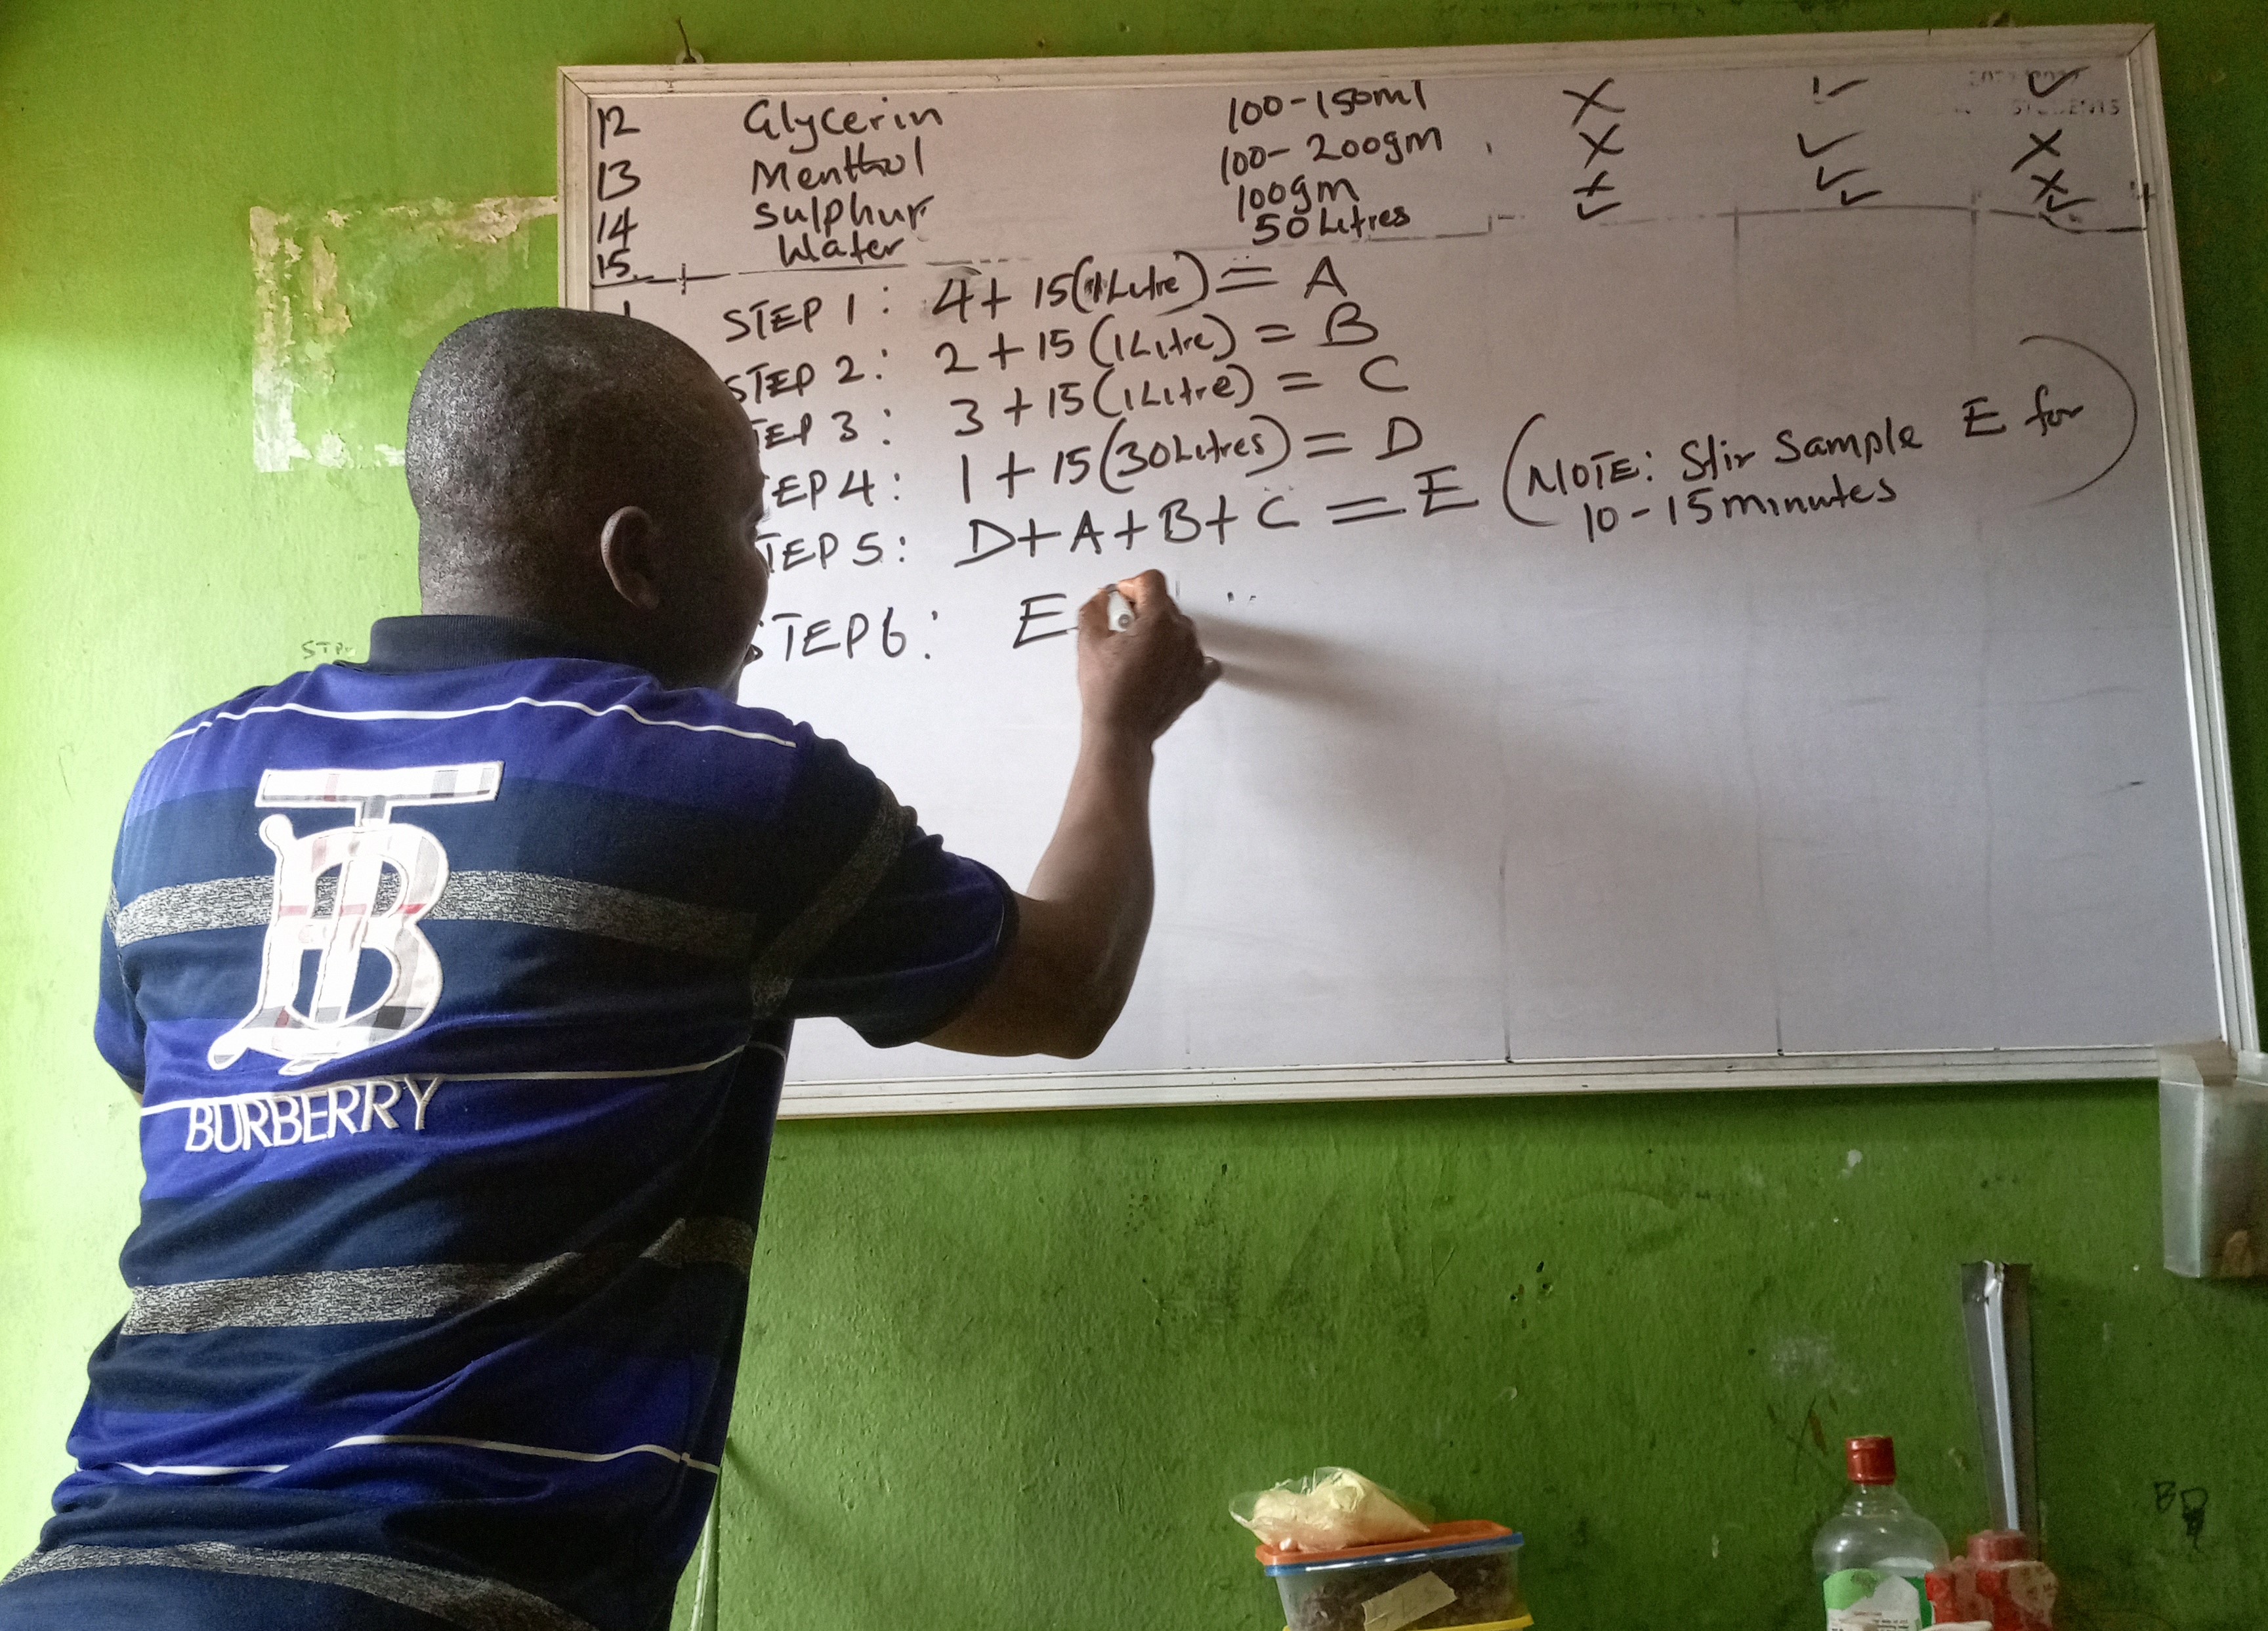 12 Glycerin 100-150ml X ✓ ✓
13 Menthol 100-200gm X ✓ X
14 Sulphur 100gm X ✓ X
15 Water 50Litres ✓ ✓ ✓
STEP 1: 4+ 15(1Litre) = A
STEP 2: 2+15 (1Litre) = B
TEP 3: 3+15(1Litre) = C
TEP 4: 1+15(30Litres) = D
TEP 5: D+A+B+C = E (NOTE: Stir Sample E for
10-15minutes)
STEP 6: E
STP
TB
BURBERRY